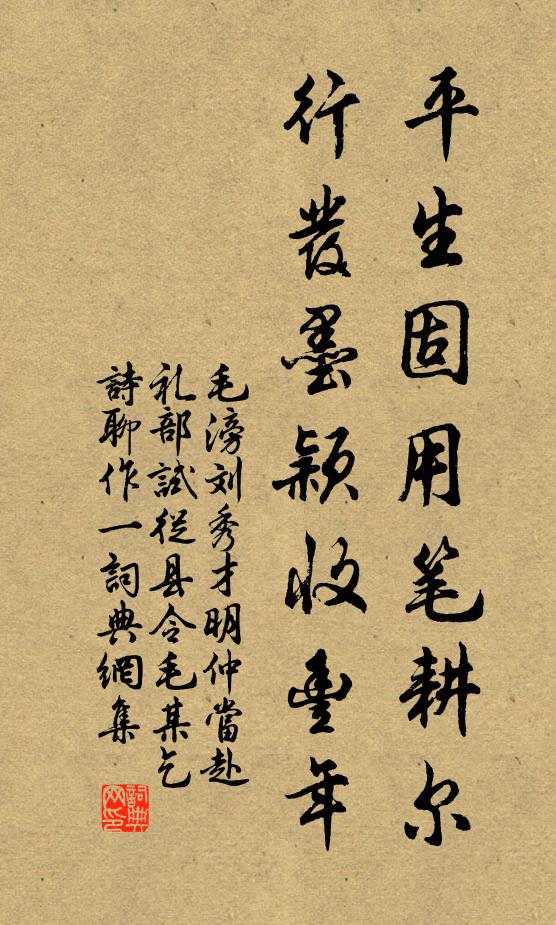 平生固用笔耕尔
行發墨颖收豊年
毛滂刘秀才明仲當赴
礼部試從县令毛某乞
詩聊作一詞典網集
詞典
网印